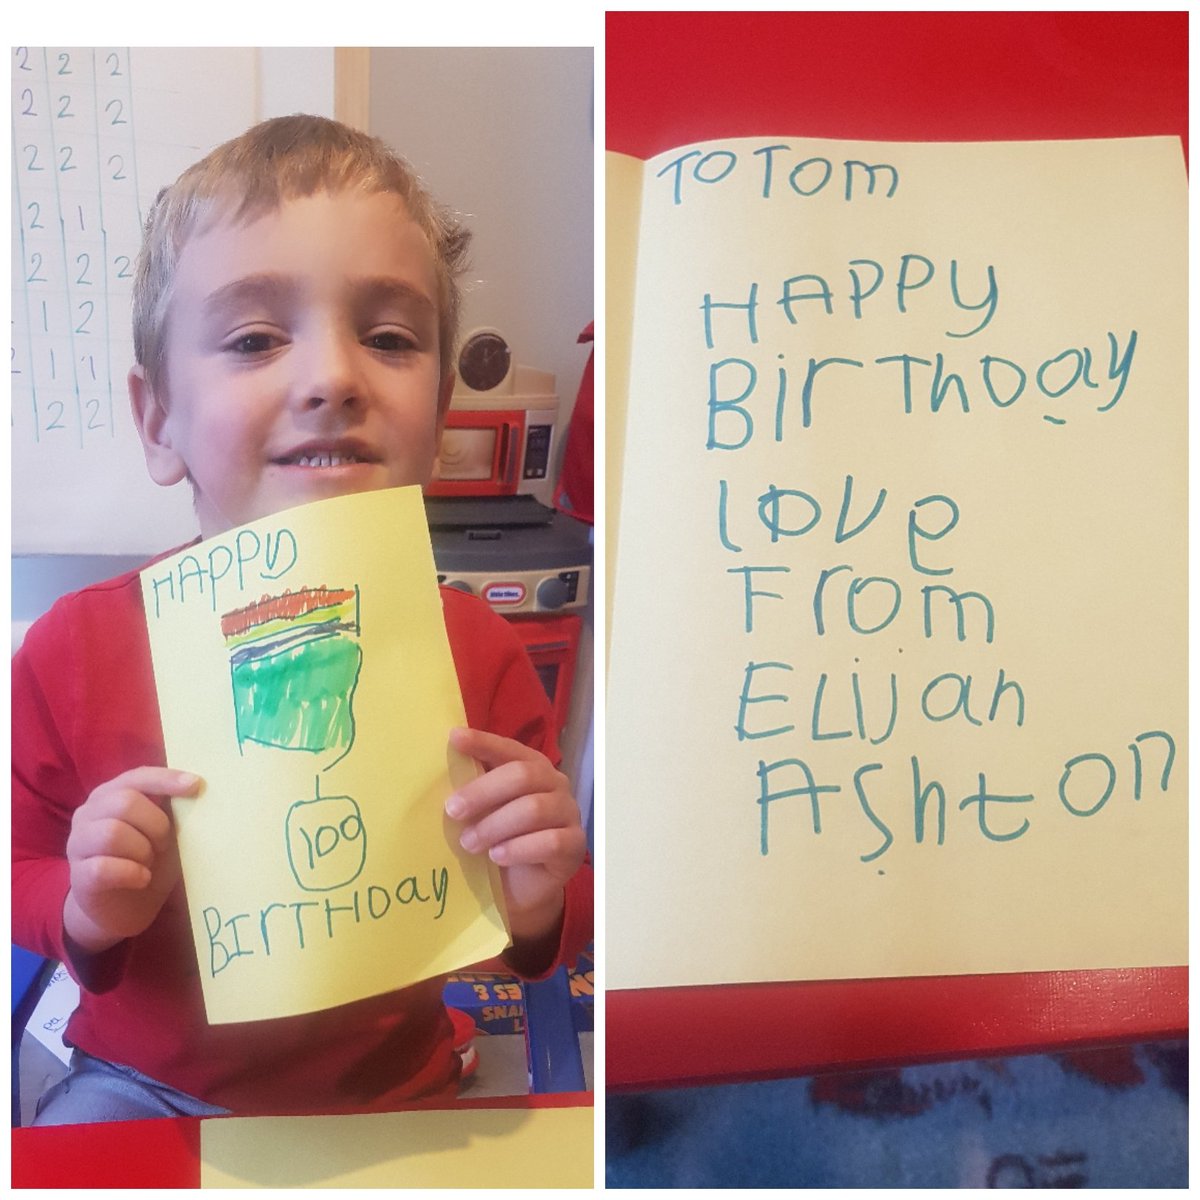 2 2 2
2 2 2
2 2 2
2 1
2 2 2
1 2
2 1 1
2 2
little tikes
HAPPY
100
BIrTHDay
TO TOm
HAPPy
BirThDay
lOVe
From
ELijah
AShton